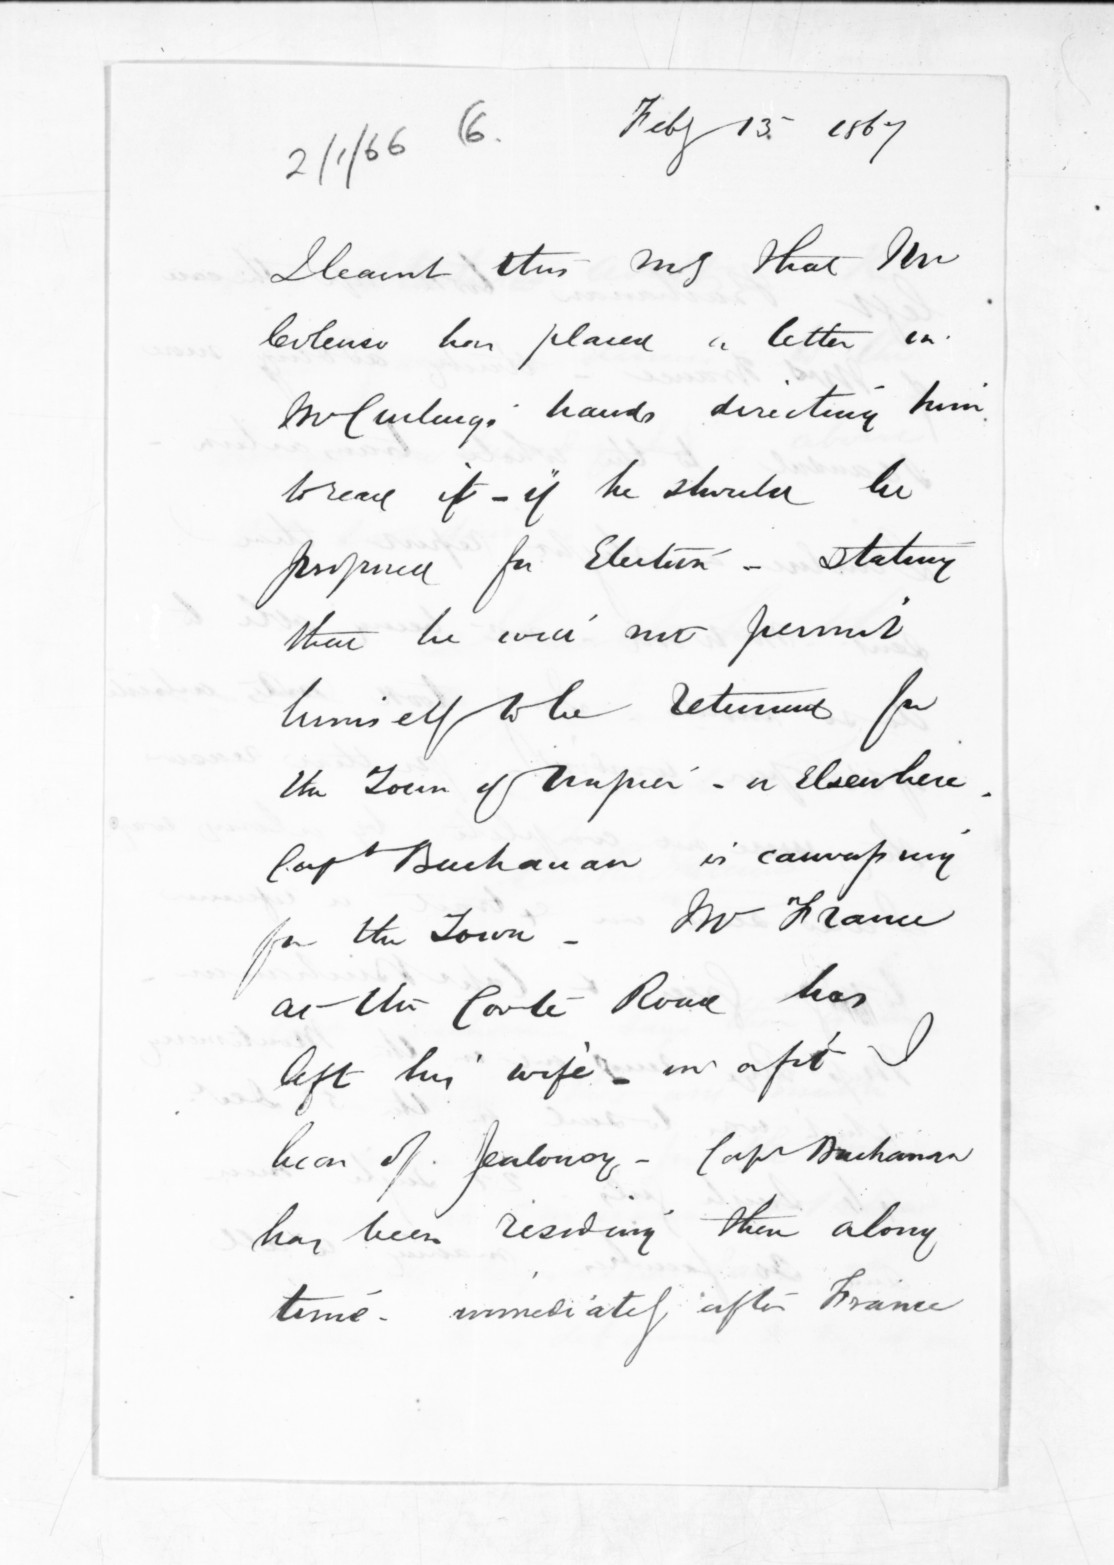 2/1/66 (6.
Feby 13. 1867
I learnt this mg that Mr
Colenso has placed a letter in
Mr Curlings' hands directing him
to read it - if he should be
proposed for Election - stating
that he wd not permit
himself to be returned for
the Town of Napier - or Elsewhere.
Capt Buchanan is canvassing
for the Town - Mr France
at the Road has
left his wife - in a fit I
hear of Jealousy - Capt Buchanan
has been residing there along
time - immediately after France